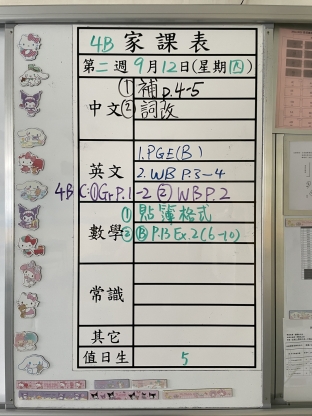 4B 家課表
第二週9月12日(星期四)
中文 ①補p.4-5
②詞改
英文 1.PGE(B)
2.WB P.3-4
4B C:①Gr P.1-2 ②WB P.2
數學 ①貼簿格式
② Ⓑ P.13 Ex.2(6-10)
常識
其它
值日生 5